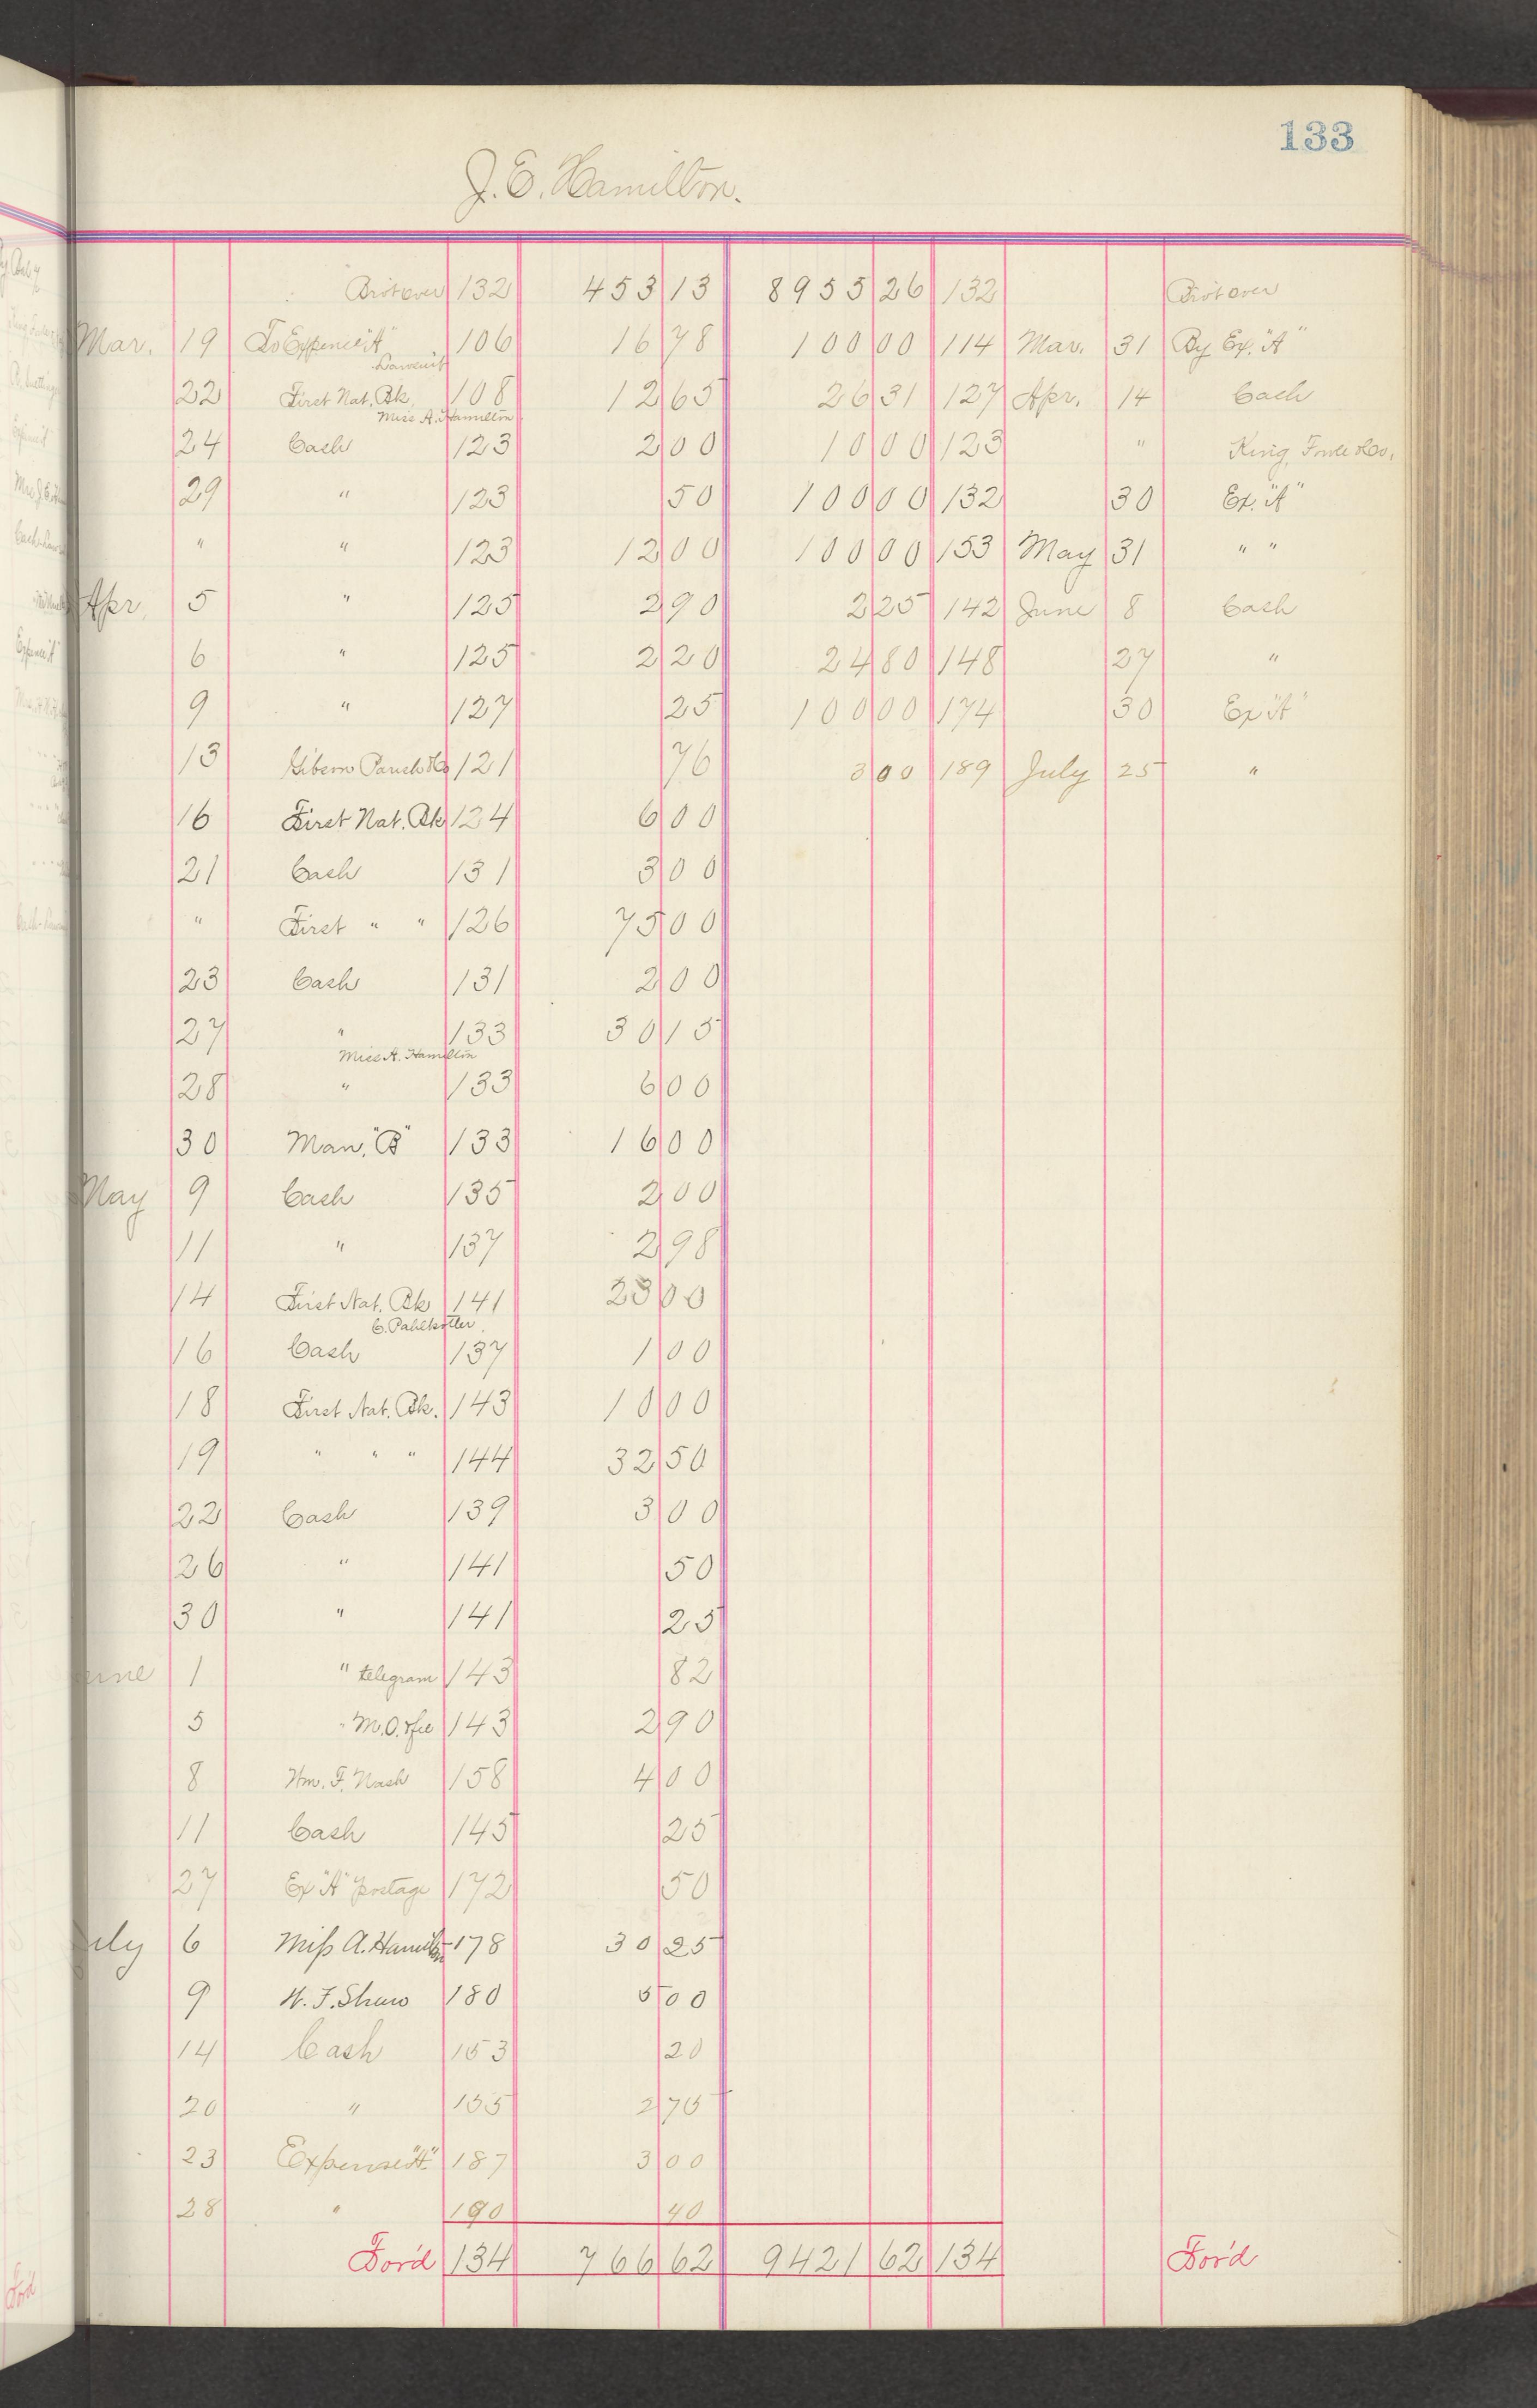 133
J. E. Hamilton.
Brot over 132 453 13 8955 26 132 Brot over
Mar. 19 To Expense "A" 106 16 78 100 00 114 Mar. 31 By Ex. "A"
22 First Nat. Bk. 108 12 65 26 31 127 Apr. 14 Cash
Miss A. Hamilton
24 Cash 123 2 00 10 00 123 " King, Co.
29 " 123 50 100 00 132 30 Ex. "A"
" " 123 12 00 100 00 153 May 31 " "
Apr. 5 " 125 2 90 2 25 142 June 8 Cash
6 " 125 2 20 24 80 148 27 "
9 " 127 25 100 00 174 30 Ex "A"
13 121 76 3 00 189 July 25 "
16 First Nat. Bk 124 6 00
21 Cash 131 3 00
" First " " 126 75 00
23 Cash 131 2 00
27 " 133 30 15
Miss A. Hamilton
28 " 133 6 00
30 Man. "B" 133 16 00
May 9 Cash 135 2 00
11 " 137 2 98
14 First Nat. Bk 141 23 00
16 Cash 137 1 00
18 First Nat. Bk. 143 10 00
19 " " " 144 32 50
22 Cash 139 3 00
26 " 141 50
30 " 141 25
June 1 " telegram 143 82
5 " M.O. & fee 143 2 90
8 Wm. F. Nash 158 4 00
11 Cash 145 25
27 Ex "A" Postage 172 50
July 6 Miss A. Hamilton 178 30 25
9 W. F. Shaw 180 5 00
14 Cash 153 20
20 " 155 2 75
23 Expense "A" 187 3 00
28 " 190 40
For'd 134 766 62 9421 62 134 For'd